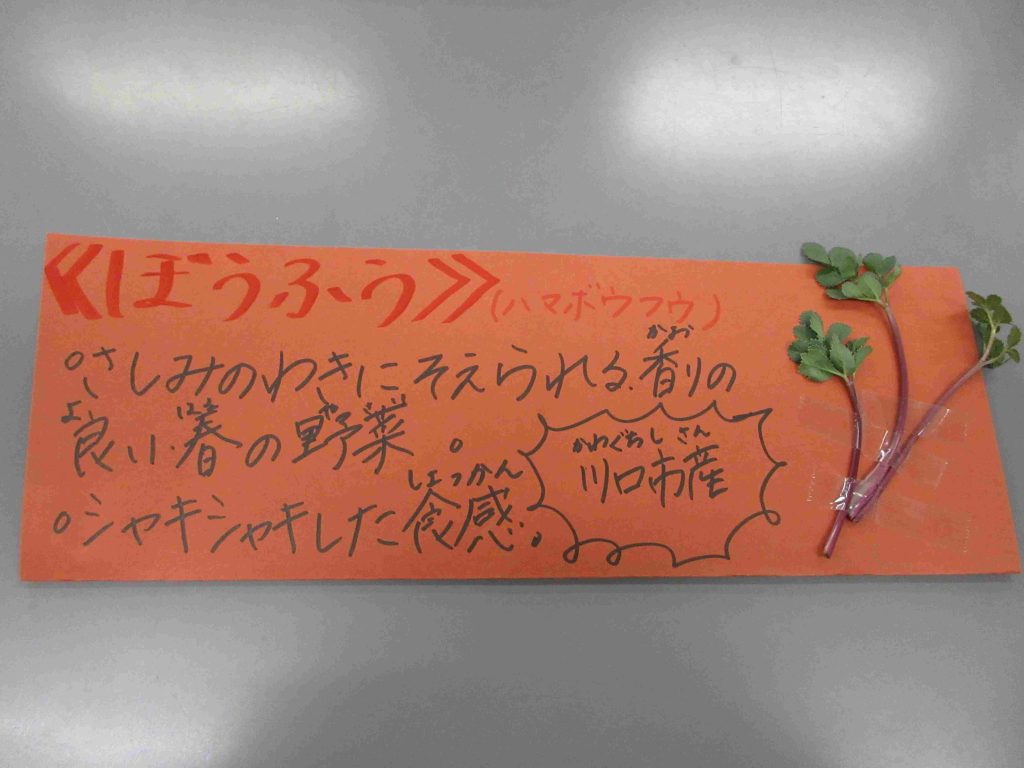 《ぼうふう》(ハマボウフウ)
かお
○さしみのわきにそえられる、香りの
よ はる やさい
良い春の野菜。
かわぐちし さん
川口市産
しょっかん
○シャキシャキした食感。